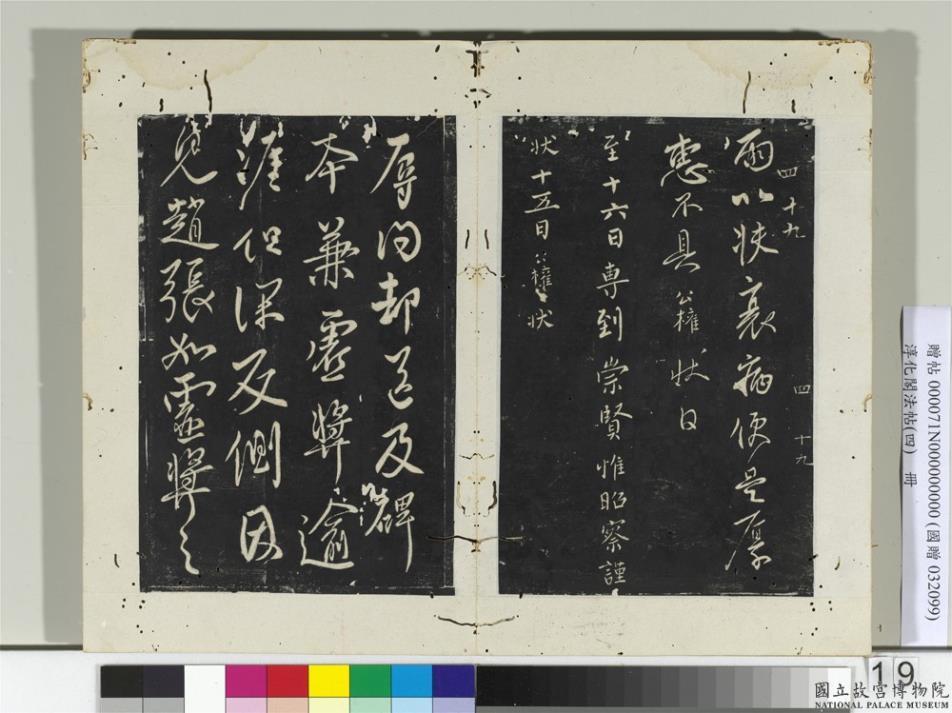 雨以狀衰病便是厚
四 十九
四 十九
惠不具公權狀日
至十六日専到崇賢惟昭察謹
狀十五日公權狀
辱問却送及碑
本兼虛奬逾
涯但深反側因
見趙張如虛奬之
贈帖 000071N000000000 (國贈 032099)
淳化閣法帖(四) 冊
19
國立故宮博物院
NATIONAL PALACE MUSEUM